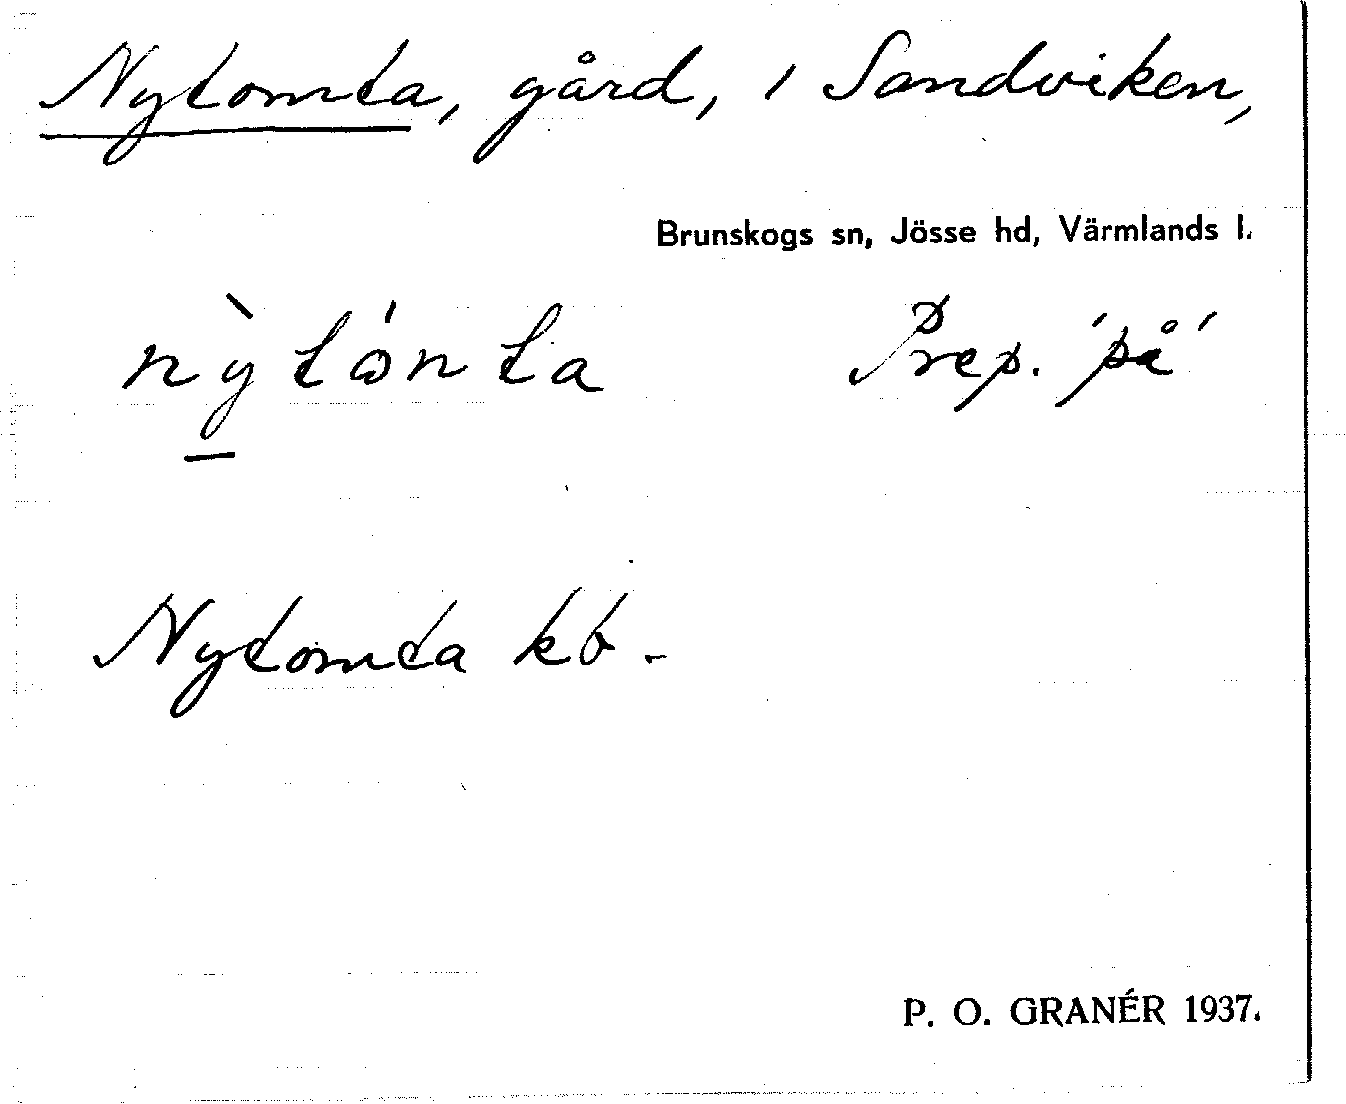 Nytomta, gård, i Sandviken,
Brunskogs sn, Jösse hd, Värmlands l.
nỳ̠tώnta Prep. 'på'
Nytomta kb.
P. O. GRANÉR 1937.